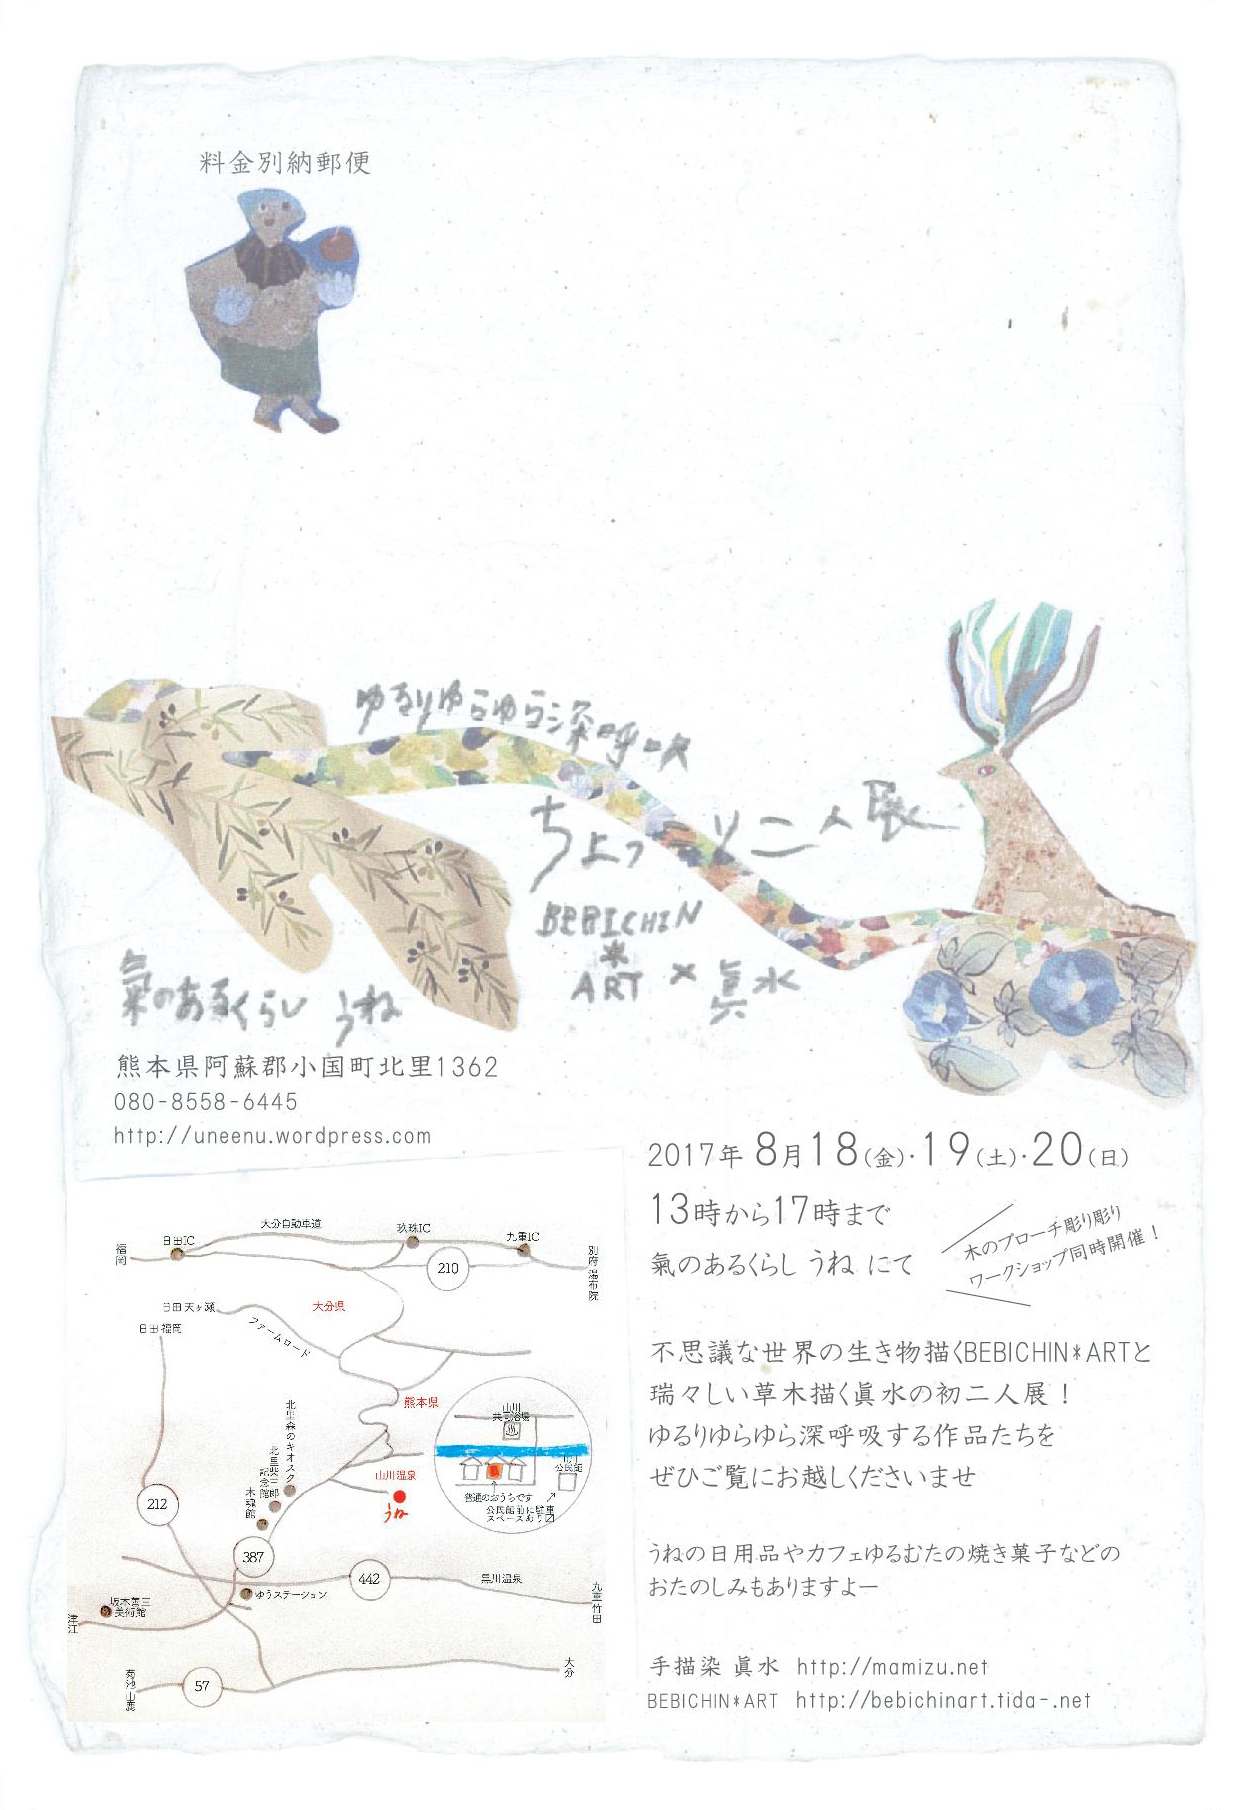 料金別納郵便
ゆるりゆらゆら深呼吸
ちょっこり二人展
BEBICHIN
*
ART × 眞水
氣のあるくらし うね
熊本県阿蘇郡小国町北里1362
080-8558-6445
http://uneenu.wordpress.com
2017年 8月18(金)・19(土)・20(日)
13時から17時まで
氣のあるくらし うね にて
木のブローチ彫り彫り
ワークショップ同時開催!
不思議な世界の生き物描くBEBICHIN*ARTと
瑞々しい草木描く眞水の初二人展!
ゆるりゆらゆら深呼吸する作品たちを
ぜひご覧にお越しくださいませ
うねの日用品やカフェゆるむたの焼き菓子などの
おたのしみもありますよー
手描染 眞水 http://mamizu.net
BEBICHIN*ART http://bebichinart.tida-.net
大分自動車道
福岡
日田IC
玖珠IC
九重IC
別府 湯布院
210
日田 天ヶ瀬
大分県
日田 福岡
ファームロード
熊本県
北里森のキオスク
北里柴三郎
記念館
木魂館
山川温泉
うね
山川
共同浴場
山川
公民館
普通のおうちです
公民館前に駐車
スペースあり
212
387
442
黒川温泉
九重 竹田
ゆうステーション
坂本善三
美術館
津江
大分
菊池 山鹿
57